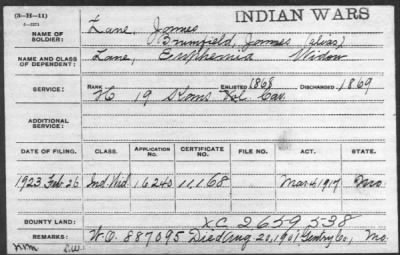 (3-H-11)
INDIAN WARS
NAME OF SOLDIER: Lane, James
Brumfield, James (alias)
NAME AND CLASS OF DEPENDENT: Lane, Euphemia Widow
SERVICE: RANK ENLISTED 1868 DISCHARGED 1869
19 Kans Vol. Cav.
ADDITIONAL SERVICE:
DATE OF FILING. CLASS. APPLICATION NO. CERTIFICATE NO. FILE NO. ACT. STATE.
1923 Feb-26 Ind. Wid 16240 11168 Mar 4, 1917 Mo
BOUNTY LAND: XC 2659538
REMARKS: W.O. 887095 Died Aug 20, Gentry Co., Mo.